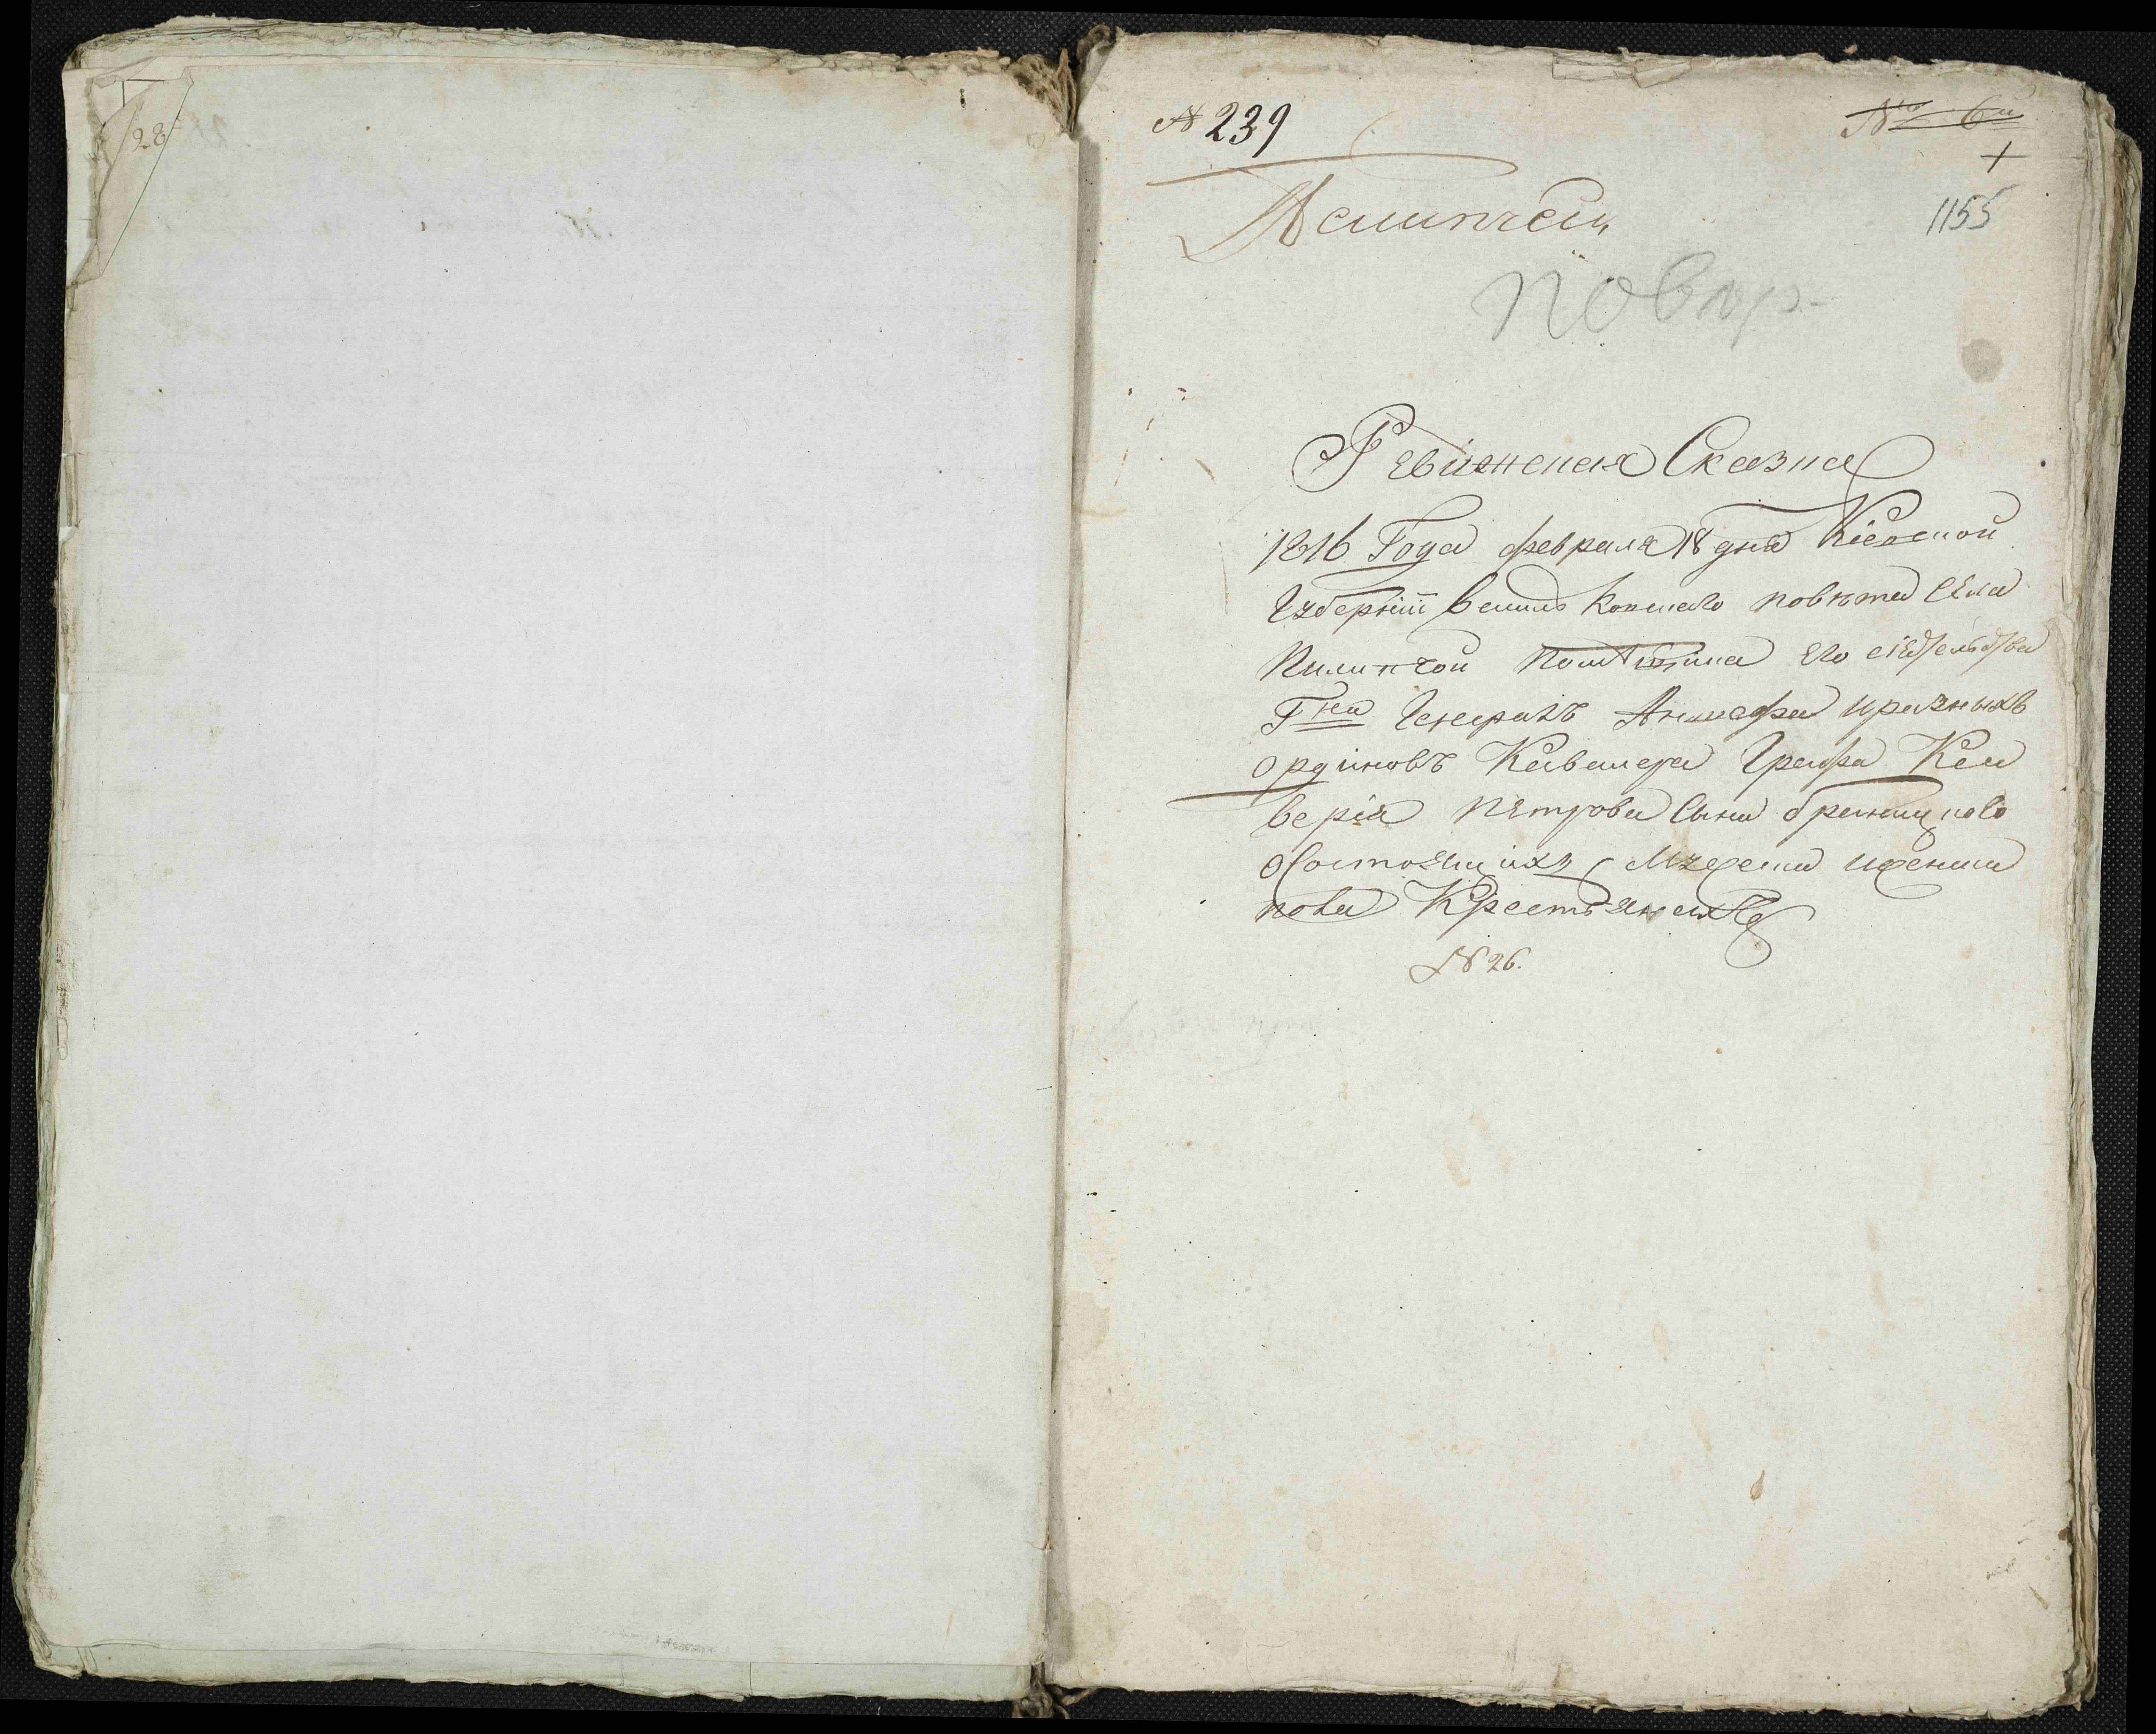 28
№ 239
№ 6й
1155
повтор
Ревижская Сказка
1816 Года февраля 18 дня Кіевской
Губерніи Василь Ковскаго повѣта Села
Пилипчой Помѣщика Его сіятельства
Гна Генералъ Аншефа иразныхъ
ординовъ Кавалера Графа Кса
верія Петрова Сына браницкого
оСостоящихъ Мужеска иженска
пола Крестьянахъ
№ 26.